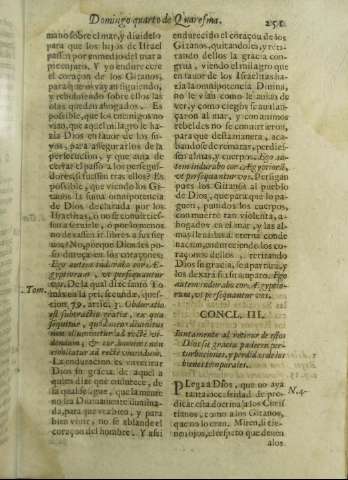 Domingo quarto de Quaresma. 251
mano sobre el mar, y divídelo
para que los hijos de Israel
passen por en medio del mar a
pie enxuto. Y yo endurecere
el coraçon de los Gitanos,
para que os vayan siguiendo,
y rebolviendo sobre ellos las
olas queden ahogados. Es
possible, que los enemigos no
vian, que aquel milagro le ha-
zia Dios en favor de los su-
yos, para assegurarlos de la
persecucion, y que avia de
cerrar el passo a los persegui-
dores, si fuessen tras ellos? Es
possible, que viendo los Gi-
tanos la suma omnipotencia
de Dios declarada por los
Israelitas, ò no se convirties-
sen a servirle, ò por lo menos
no dexassen ir libres a sus sier-
vos? No, porque Dios les pu-
so dureza en los coraçones:
Ego autem indurabo cor Æ-
gyptiorum, ut persequantur
eos. De la qual dize santo To-
Tom. mas en la pri. secundæ, quæs-
cion 79. artic. 3. Obduratio
est subtractio gratiæ, ex qua
sequitur, quod mens divinitus
non illuminetur ad recte vi-
dendum, & cor hominis non
emolliatur ad recte vivendum.
La enduracion es retirar
Dios su gracia de aquel a
quien dize que endurece, de
la qual se sigue, que la mente
no sea Divinamente ilumina-
da, para que vea bien, y para
bien vivir, no se ablande el
coraçon del hombre. Y assi
endurecido el coraçon de los
Gitanos, quitandoles, y reti-
rando dellos la gracia con-
grua, viendo el milagro que
en favor de los Israelitas ha-
zia la omnipotencia Divina,
no le vian como le avian de
ver, y como ciegos se avalan-
çaron al mar, y con animos
rebeldes no se convirtieron,
para que desta manera, aca-
bandose de rematar, perdies-
sen almas, y cuerpos. Ego au-
tem indurabo cor Ægyptiorũ,
ut persequantur vos. Persigan
pues los Gitanos al pueblo
de Dios, que para que lo pa-
guen, pondrè los cuerpos,
con muerte tan violenta, a-
hogados en el mar, y las al-
mas llevaràn a eterna conde
nacion, endureciendo los co-
raçones dellos, retirando
Dios su gracia, se apartarà, y
los dexarà fixa su pravo. Ego
autem indurabo cor Ægyptio-
rum, ut persequantur vos.
CONCL. III.
Juntamente al retirar de essos
Dios su gracia padecen per-
turbaciones, y perdidas de los
bienes temporales.
PLegaa Dios, que no aya N. 4.
tanta necessidad de pre-
dicar esta doctrina a los Chris
tianos, como a los Gitanos,
que no lo eran. Miren, si tie-
nen ojos, el respeto que deven
a los